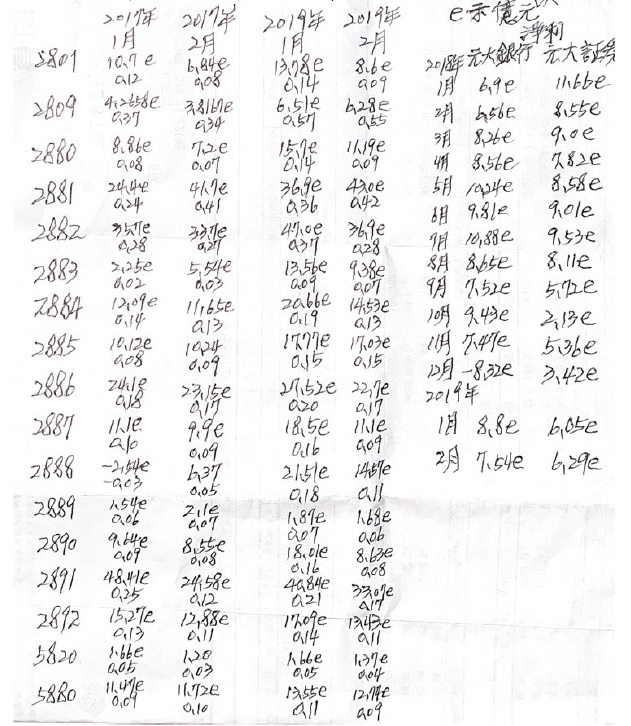 2017年 2017年 2019年 2019年
1月 2月 1月 2月
5801 10.7e 6.84e 13.78e 8.6e
0.12 0.08 0.14 0.09
2809 4.2658e 3.8167e 6.51e 6.28e
0.37 0.34 0.57 0.55
2880 8.86e 7.2e 15.7e 11.19e
0.08 0.07 0.14 0.09
2881 24.4e 41.7e 36.9e 43.0e
0.24 0.41 0.36 0.42
2882 35.7e 33.7e 47.0e 36.9e
0.28 0.27 0.37 0.28
2883 2.25e 5.54e 13.56e 9.38e
0.02 0.03 0.09 0.07
2884 12.09e 11.65e 20.66e 14.53e
0.14 0.13 0.19 0.13
2885 10.12e 10.24 17.77e 17.03e
0.08 0.09 0.15 0.15
2886 24.1e 23.15e 27.52e 22.7e
0.18 0.17 0.20 0.17
2887 11.1e 9.9e 18.5e 11.1e
0.10 0.09 0.16 0.09
2888 -2.54e 6.37 21.51e 14.57e
-0.03 0.05 0.18 0.11
2889 1.54e 2.1e 1.87e 1.68e
0.06 0.07 0.07 0.06
2890 9.64e 8.55e 18.01e 8.63e
0.09 0.08 0.16 0.08
2891 48.41e 24.58e 40.84e 33.07e
0.25 0.12 0.21 0.17
2892 15.27e 12.88e 17.09e 13.43e
0.13 0.11 0.14 0.11
5820 1.66e 1.20 1.66e 1.37e
0.05 0.03 0.05 0.04
5880 11.47e 11.72e 13.55e 12.74e
0.09 0.10 0.11 0.09
e示億元
淨利
2018年 元大銀行 元大証券
1月 6.9e 11.66e
2月 6.56e 8.55e
3月 8.26e 9.0e
4月 8.56e 7.82e
5月 10.24e 8.58e
6月 9.81e 9.01e
7月 10.88e 9.53e
8月 8.65e 8.11e
9月 7.52e 5.72e
10月 9.43e 2.13e
11月 7.47e 5.36e
12月 -8.32e 3.42e
2019年
1月 8.8e 6.05e
2月 7.54e 6.29e